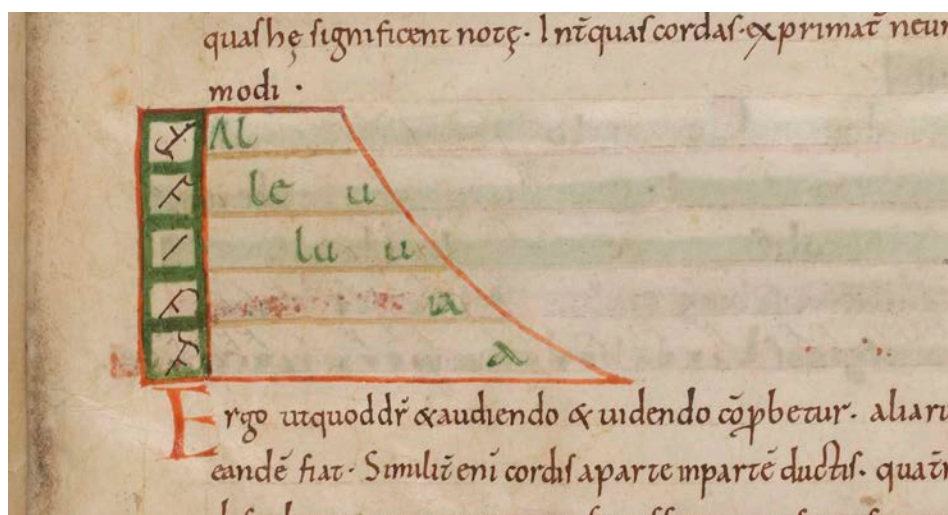 quas hę significent notę. Int̄ quas cordas. exprimat̄ neum
modi .
Al
le u
lu u
ia
a
Ergo ut quod dr̄ & audiendo & uidendo cōp̱betur. aliaru
eandē fiat. Similit̄ eni cordis a parte in partē ductis. quat